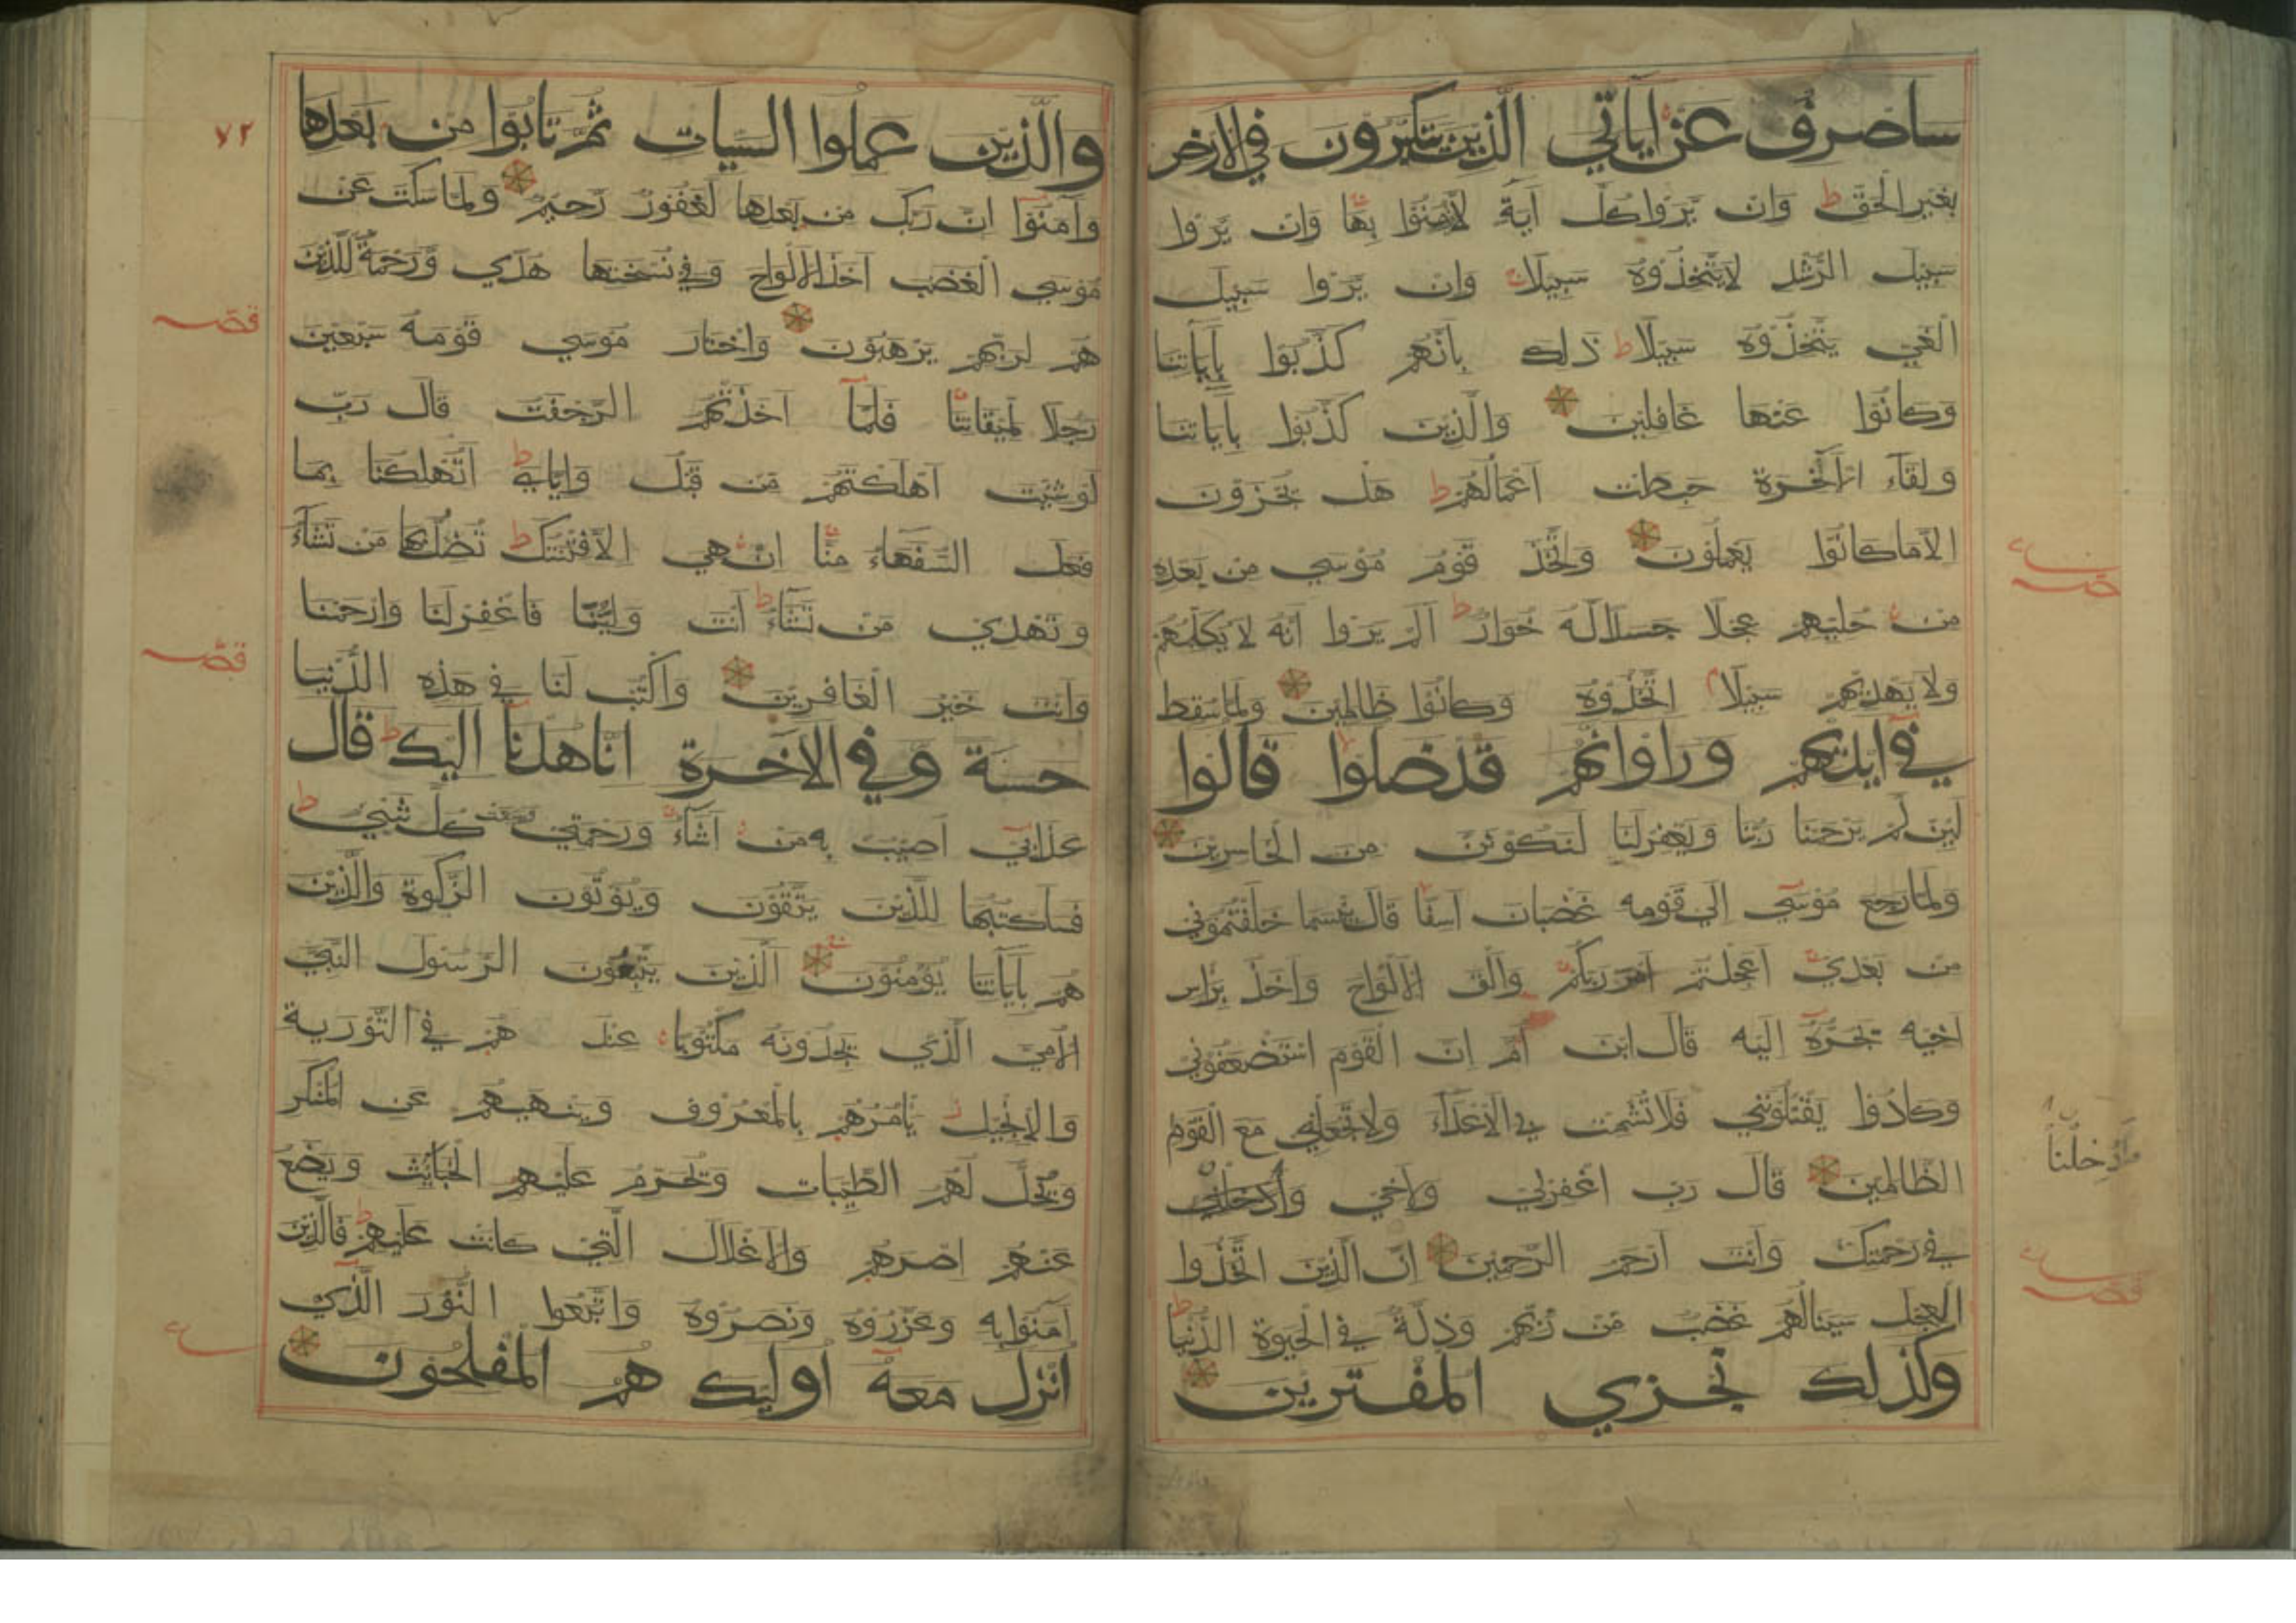 ساصرف عن اياتي الذين يتكبرون في الارض
بغير الحق ط وان يروا كل اية لا يؤمنوا بها وان يروا
سبيل الرشد لا يتخذوه سبيلا وان يروا سبيل
الغي يتخذوه سبيلا ط ذلك بانهم كذبوا باياتنا
وكانوا عنها غافلين والذين كذبوا باياتنا
ولقاء الاخرة حبطت اعمالهم ط هل يجزون
الا ما كانوا يعملون واتخذ قوم موسي من بعده
من حليهم عجلا جسدا له خوار ط الم يروا انه لا يكلمهم
ولا يهديهم سبيلا م اتخذوه وكانوا ظالمين ولما سقط
في ايديهم وراوا انهم قد ضلوا قالوا
لين لم يرحمنا ربنا ويغفر لنا لنكونن من الخاسرين
ولما رجع موسي الي قومه غضبان اسفا قال بئسما خلفتموني
من بعدي اعجلتم امر ربكم والقي الالواح واخذ براس
اخيه يجره اليه قال ابن ام ان القوم استضعفوني
وكادوا يقتلونني فلا تشمت بي الاعداء ولا تجعلني مع القوم
الظالمين قال رب اغفر لي ولاخي وادخلنا
وادخلنا
في رحمتك وانت ارحم الرحمين ان الذين اتخذوا
العجل سينالهم غضب من ربهم وذلة في الحيوة الدنيا ط
وكذلك نجزي المفترين
٧٢
والذين عملوا السيات ثم تابوا من بعدها
وامنوا ان ربك من بعدها لغفور رحيم ولما سكت عن
موسي الغضب اخذ الالواح وفي نسختها هدي ورحمة للذين
هم لربهم يرهبون واختار موسي قومه سبعين
قصه
رجلا لميقاتنا فلما اخذتهم الرجفة قال رب
لو شيت اهلكتهم من قبل واياي ط اتهلكنا بما
فعل السفهاء منا ان هي الا فتنتك ط تضل بها من تشاء
وتهدي من تشاء ط انت ولينا فاغفر لنا وارحمنا
قصه
وانت خير الغافرين واكتب لنا في هذه الدنيا
حسنة وفي الاخرة انا هدنا اليك ط قال
عذابي اصيب به من اشاء ورحمتي وسعت كل شيي ط
فساكتبها للذين يتقون ويؤتون الزكوة والذين
هم باياتنا يؤمنون الذين يتبعون الرسول النبي
الامي الذي يجدونه مكتوبا عند هم في التورية
والانجيل يامرهم بالمعروف وينهيهم عن المنكر
ويحل لهم الطيبات ويحرم عليهم الخبايث ويضع
عنهم اصرهم والاغلال التي كانت عليهم ط فالذين
امنوا به وعزروه ونصروه واتبعوا النور الذي
انزل معه اوليك هم المفلحون